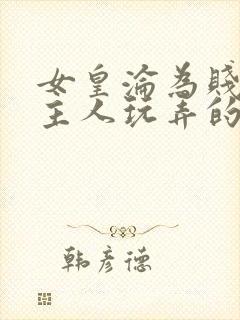 女皇淪為賤
主人玩弄的
韩彦德